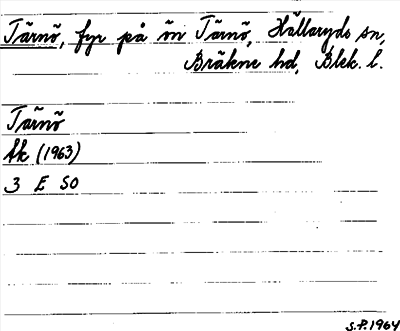 Tärnö, fyr på ön Tärnö, Hällaryds sn,
Bräkne hd, Blek. l.
Tärnö
Ek (1963)
3 E SO
S.P. 1964